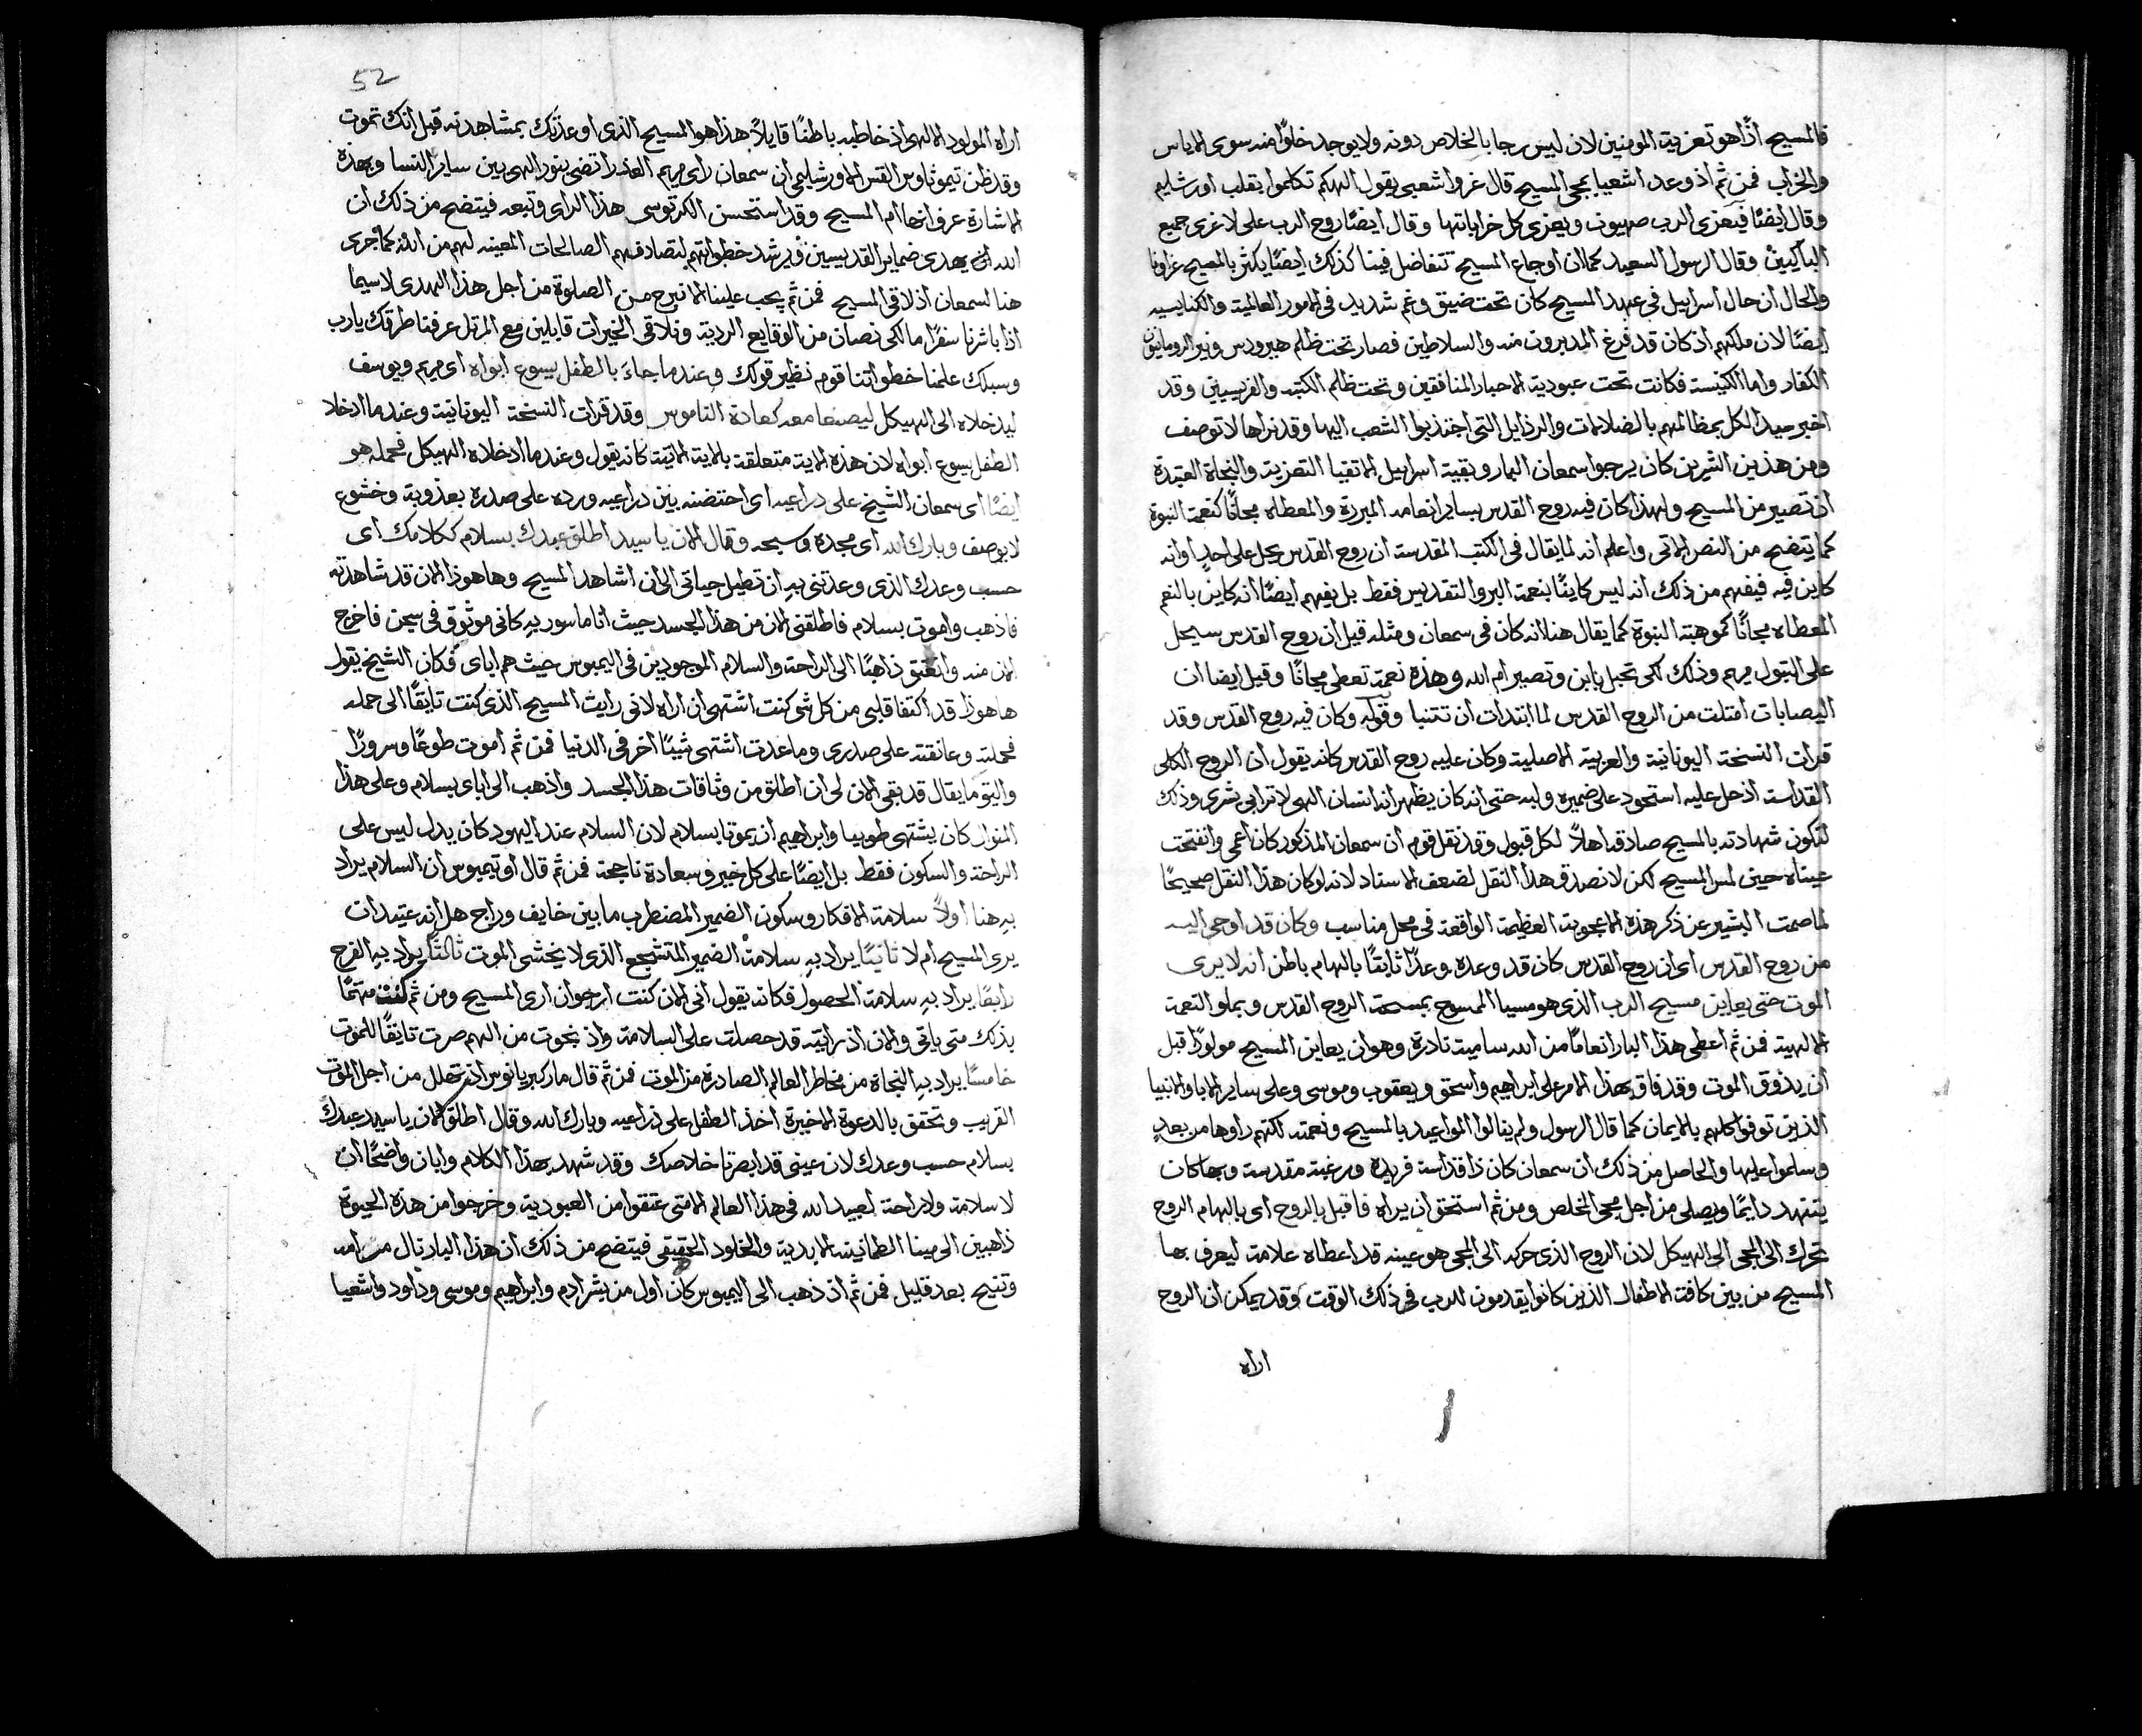 فالمسيح اذًا هو تعزية المومنين لان ليس رجا بالخلاص دونه ولا يوجد خلوًا منه سوى الاياس
والخراب فمن ثم اذ وعد اشعيا بمجى المسيح قال عزوا شعبى يقول الهكم تكلموا بقلب اورشليم
وقال ايضًا فيعزى الرب صهيون ويعزى كل خراباتها وقال ايضًا روح الرب على لاعزى جميع
الباكيين وقال الرسول السعيد كما ان اوجاع المسيح تتفاضل فينا كذلك ايضًا يكثر بالمسيح عزاونا
والحال ان حال اسراييل فى عهد المسيح كان تحت ضيق وغم شديد فى الامور العالمية والكنايسيه
ايضًا لان ملكهم اذ كان قد فرغ المدبرون منه والسلاطين فصار تحت ظلم هيرودس ونير الرومانيون
الكفار واما الكنيسة فكانت تحت عبودية الاحبار المنافقين وتحت ظلم الكتبه والفريسيين وقد
اخبر سيد الكل بمظالمهم بالضلالات والرذايل التى اجتذبوا الشعب اليها وقد نراها لا توصف
ومن هذين الشرين كان يرجوا سمعان البار وبقية اسراييل الاتقيا التعزية والنجاة العتيدة
ان تصير من المسيح ولهذا كان فيه روح القدس بساير انعامه المبررة والمعطاه مجانًا كنعمة النبوة
كما يتضح من النص الاتى واعلم انه لما يقال فى الكتب المقدسة ان روح القدس يحل على احدٍ او انه
كاين فيه فيفهم من ذلك انه ليس كاينًا بنعمة البر والتقديس فقط بل يفهم ايضًا انه كاين بالنعم
المعطاه مجانًا كموهبة النبوة كما يقال هنا انه كان فى سمعان ومثله قيل ان روح القدس سيحل
على البتول مريم وذلك لكى تحبل بابن وتصير ام الله وهذه نعمة تعطى مجانًا وقيل ايضا ان
اليصابات امتلت من الروح القدس لما ابتدات ان تتنبا وقوله وكان فيه روح القدس وقد
قرات النسخة اليونانية والعربية الاصلية وكان عليه روح القدس كانه يقول ان الروح الكلى
القداسه اذ حل عليه استحوذ على ضميره ولبه حتى انه كان يظهر انه انسان الهى لا ترابى بشرى وذلك
لتكون شهادته بالمسيح صادقه اهلاً لكل قبول وقد نقل قوم ان سمعان المذكور كان اعمى وانفتحت
عيناه حين لمس المسيح لكن لا نصدق هذا النقل لضعف الاسناد لانه لو كان هذا النقل صحيحًا
لما صمت البشير عن ذكر هذه الاعجوبة العظيمة الواقعة فى محل مناسب وكان قد اوحى اليه
من روح القدس اى ان روح القدس كان قد وعده وعدًا ثابتًا بالهام باطن انه لا يرى
الموت حتى يعاين مسيح الرب الذى هو مسيا الممسوح بمسحة الروح القدس وبملو النعمة
الالهية فمن ثم اعطى هذا البار انعامًا من الله سامية نادرة وهو ان يعاين المسيح مولودًا قبل
ان يذوق الموت وقد فاق بهذا الامر على ابراهيم واسحق ويعقوب وموسى وعلى ساير الابا والانبيا
الذين توفوا كلهم بالايمان كما قال الرسول ولم ينالوا المواعيد بالمسيح ونعمته لكنهم راوها من بعدٍ
وسلموا عليها والحاصل من ذلك ان سمعان كان ذا قداسه فريدة ورغبة مقدسة وبها كان
يتنهد دايمًا ويصلى من اجل مجى المخلص ومن ثم استحق ان يراه فاقبل بالروح اى بالهام الروح
تحرك الى المجى الى الهيكل لان الروح الذى حركه الى المجى هو عينه قد اعطاه علامة ليعرف بها
المسيح من بين كافة الاطفال الذين كانوا يقدمون للرب فى ذلك الوقت وقد يمكن ان الروح
اراه
52
اراه المولود الالهى اذ خاطبه باطنًا قايلاً هذا هو المسيح الذى اوعدتك بمشاهدته قبل انك تموت
وقد ظن تيموثاوس القس الاورشليمى ان سمعان راى مريم العذرا تضى بنور الهى بين ساير النسا وبهذه
الاشارة عرف انها ام المسيح وقد استحسن الكرتوسى هذا الراى وتبعه فيتضح من ذلك ان
الله يهدى ضماير القديسين ويرشد خطواتهم لتصادفهم الصالحات المعينه لهم من الله كما جرى
هنا لسمعان اذ لاقى المسيح فمن ثم يجب علينا الا نبرح من الصلوة من اجل هذا الهدى لاسيما
اذا باشرنا سفرًا ما لكى نصان من الوقايع الردية ونلاقى الخيرات قايلين مع المرتل عرفنا طرقك يارب
وسبلك علمنا خطواتنا قوم نظير قولك وعندما جاءَ بالطفل يسوع ابواه اى مريم ويوسف
ليدخلاه الى الهيكل ليصنعا معه كعادة الناموس وقد قرات النسخة اليونانية وعندما ادخلا
الطفل يسوع ابواه لان هذه الاية متعلقة بالاية الاتية كانه يقول وعندما ادخلاه الهيكل فحمله هو
ايضًا اى سمعان الشيخ على دراعيه اى احتضنه بين دراعيه ورده على صدره بعذوبة وخشوع
لا يوصف وبارك الله اى مجده وسبحه وقال الان يا سيد اطلق عبدك بسلام ككلامك اى
حسب وعدك الذى وعدتنى بهِ ان تطيل حياتى الى ان اشاهد المسيح وها هوذا الان قد شاهدته
فاذهب واموت بسلام فاطلقنى الان من هذا الجسد حيث انا ماسور بهِ كانى موثوق فى سجن فاخرج
الان منه وانعتق ذاهبًا الى الراحة والسلام الموجودين فى اليمبوس حيث هم اباى فكان الشيخ يقول
ها هوذا قد اكتفا قلبى من كل شى كنت اشتهى ان اراه لانى رايت المسيح الذى كنت تايقًا الى حمله
فحملته وعانقته على صدرى وما عدت اشتهى شيًا اخر فى الدنيا فمن ثم اموت طوعًا وسرورًا
والبتو ما يقال قد بقى الان لى ان اطلق من وثاقات هذا الجسد واذهب الى اباى بسلام وعلى هذا
المنوال كان يشتهى طوبيا وابراهيم ان يموتا بسلام لان السلام عند اليهود كان يدل ليس على
الراحة والسكون فقط بل ايضًا على كل خير وسعادة ناجحة فمن ثم قال اوتيميوس ان السلام يراد
بهِ هنا اولاً سلامة الافكار وسكون الضمير المضطرب ما بين خايف وراجٍ هل انه عتيد ان
يرى المسيح ام لا ثانيًا يراد بهِ سلامة الضمير المتشجع الذى لا يخشى الموت ثالثًا يراد بهِ الفرح
رابعًا يراد بهِ سلامة الحصول فكانه يقول انى الان كنت ارجوا ان ارى المسيح ومن ثم كنت مهتمًا
بذلك متى ياتى والان اذ رايته قد حصلت على السلامة واذ نجوت من الهم صرت تايقًا للموت
خامسًا يراد بهِ النجاة من مخاطر العالم الصادرة من الموت فمن ثم قال مار كبريانوس انه تهلل من اجل الموت
القريب وتحقق بالدعوة الاخيرة اخذ الطفل على ذراعيه وبارك الله وقال اطلق الان يا سيد عبدك
بسلام حسب وعدك لان عينى قد ابصرتا خلاصك وقد شهد بهذا الكلام وابان واضحًا ان
لا سلامة ولا راحة لعبيد الله فى هذا العالم الا متى عتقوا من العبودية وخرجوا من هذه الحيوة
ذاهبين الى مينا الطمانينه الابدية والخلود الحقيقى فيتضح من ذلك ان هذا البار نال مرامه
وتنيح بعد قليل فمن ثم اذ ذهب الى اليمبوس كان اول من بشر ادم وابراهيم وموسى وداود واشعيا